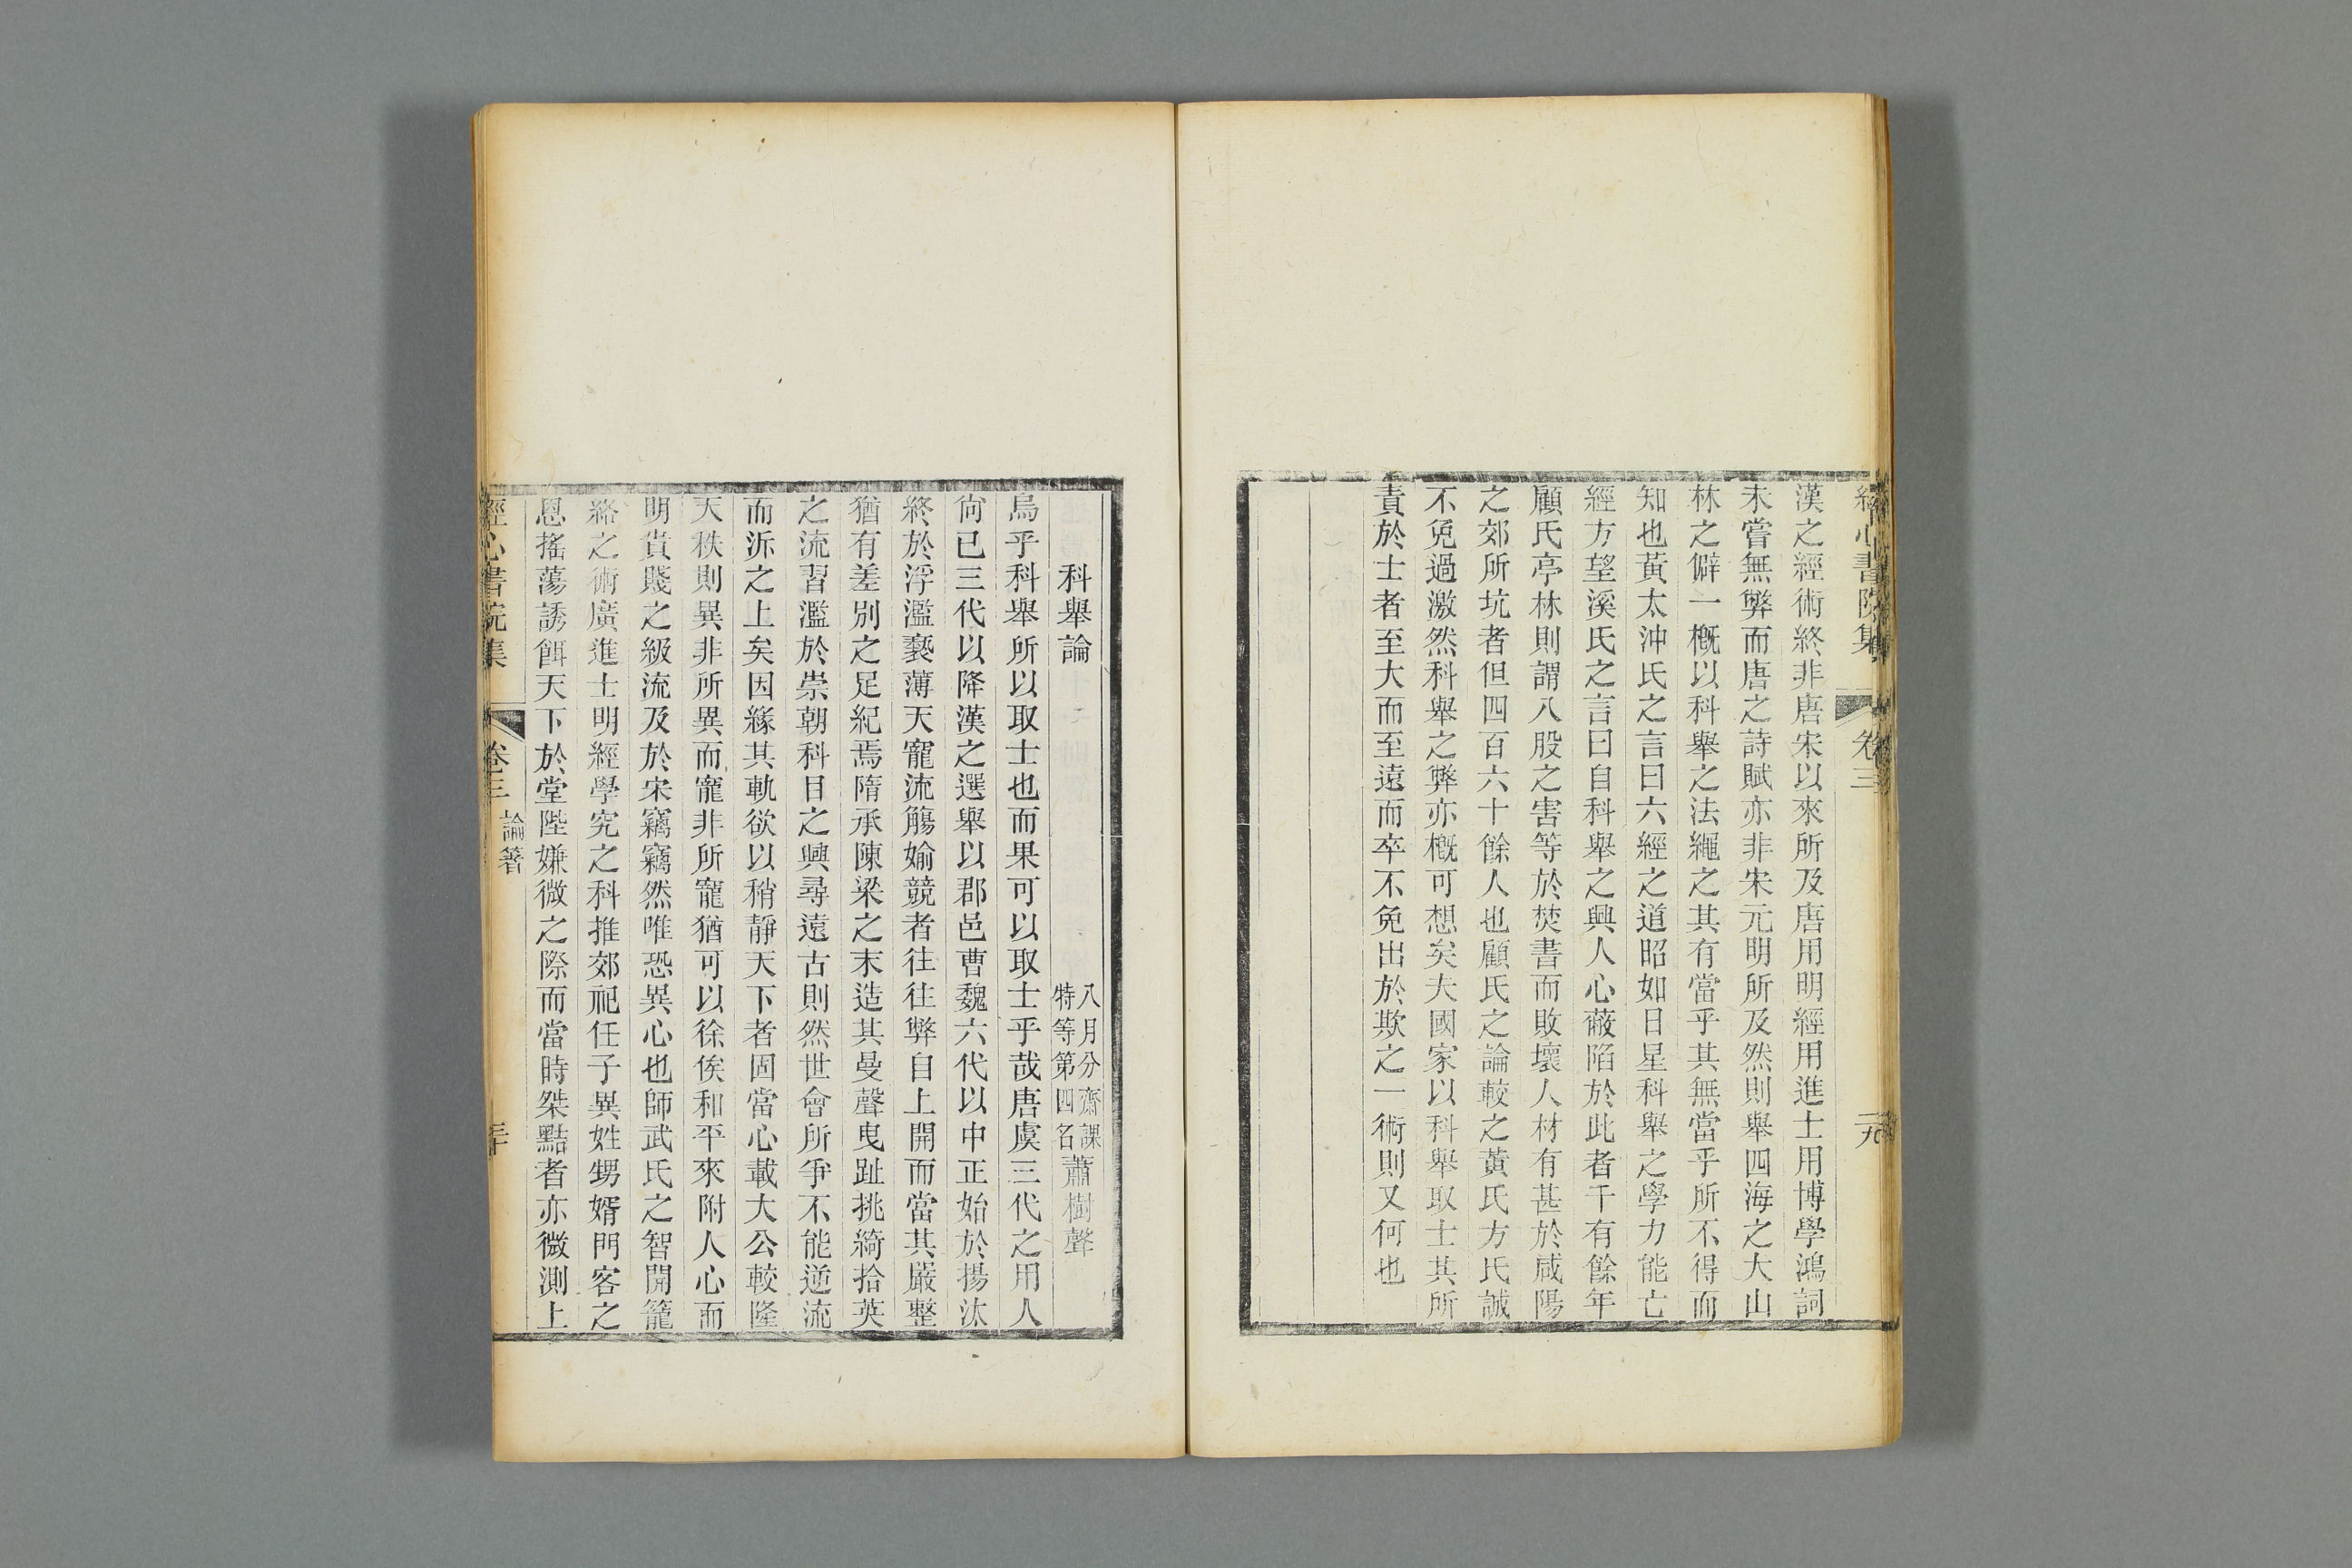 經心書院集 卷三 二十九
漢之經術終非唐宋以來所及唐用明經用進士用博學鴻詞
未嘗無弊而唐之詩賦亦非宋元明所及然則舉四海之大山
林之僻一概以科舉之法繩之其有當乎其無當乎所不得而
知也黃太沖氏之言曰六經之道昭如日星科舉之學力能亡
經方望溪氏之言曰自科舉之興人心蔽陷於此者千有餘年
顧氏亭林則謂八股之害等於焚書而敗壞人材有甚於咸陽
之郊所坑者但四百六十餘人也顧氏之論較之黃氏方氏誠
不免過激然科舉之弊亦概可想矣夫國家以科舉取士其所
責於士者至大而至遠而卒不免出於欺之一術則又何也
科舉論
八月分齋課
特等第四名
蕭樹聲
烏乎科舉所以取士也而果可以取士乎哉唐虞三代之用人
尙已三代以降漢之選舉以郡邑曹魏六代以中正始於揚汰
終於浮濫褻薄天寵流觴婾競者往往弊自上開而當其嚴整
猶有差別之足紀焉隋承陳梁之末造其曼聲曳趾挑綺拾英
之流習濫於崇朝科目之興尋遠古則然世會所爭不能逆流
而泝之上矣因緣其軌欲以稍靜天下者固當心載大公較隆
天秩則異非所異而寵非所寵猶可以徐俟和平來附人心而
明貴賤之級流及於宋竊竊然唯恐異心也師武氏之智開籠
絡之術廣進士明經學究之科推郊祀任子異姓甥婿門客之
恩搖蕩誘餌天下於堂陛嫌微之際而當時桀黠者亦微測上
經心書院集 卷三 論箸 三十